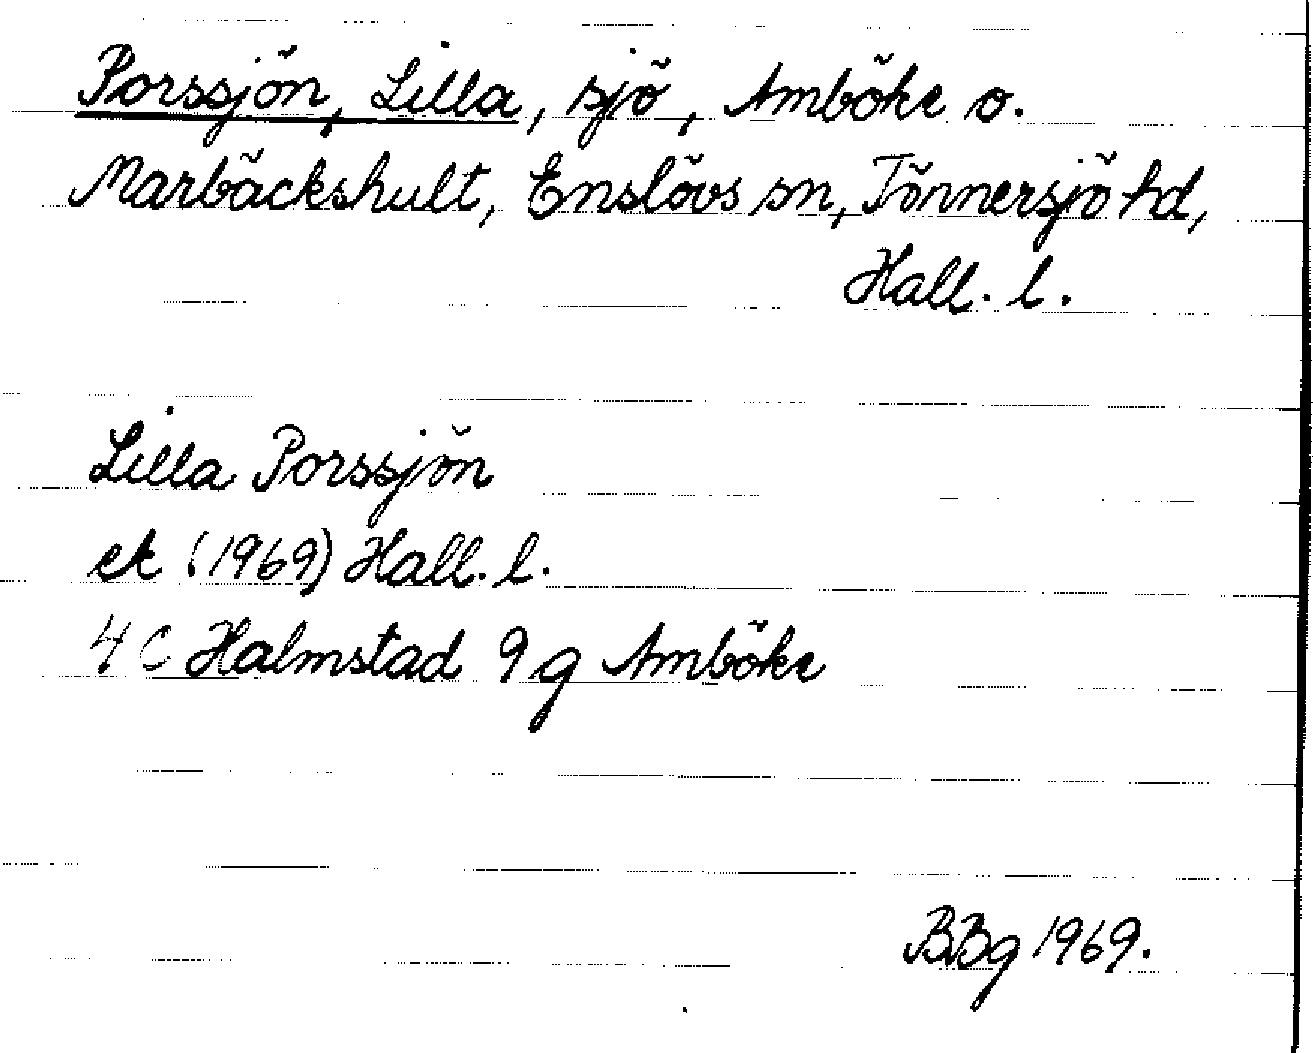 Porssjön, Lilla, sjö, Amböke o.
Marbäckshult, Enslövs sn, Tönnersjö hd,
Hall. l.
Lilla Porssjön
ek (1969) Hall. l.
4 C Halmstad 9 g Amböke
BBg 1969.